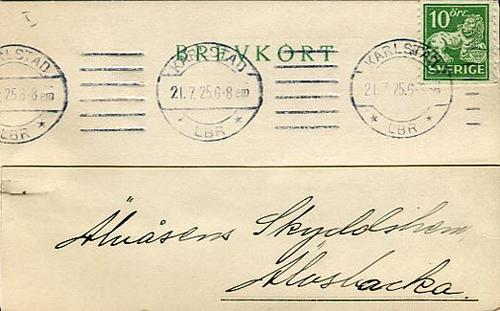 10 öre
SVERIGE
BREVKORT
KARLSTAD
21. 7. 25. 6-8 em
LBR
KARLSTAD
21. 7. 25. 6-8 em
LBR
KARLSTAD
7. 25. 6-8 em
LBR
Älvåsens Skyddshem,
Älvsbacka.